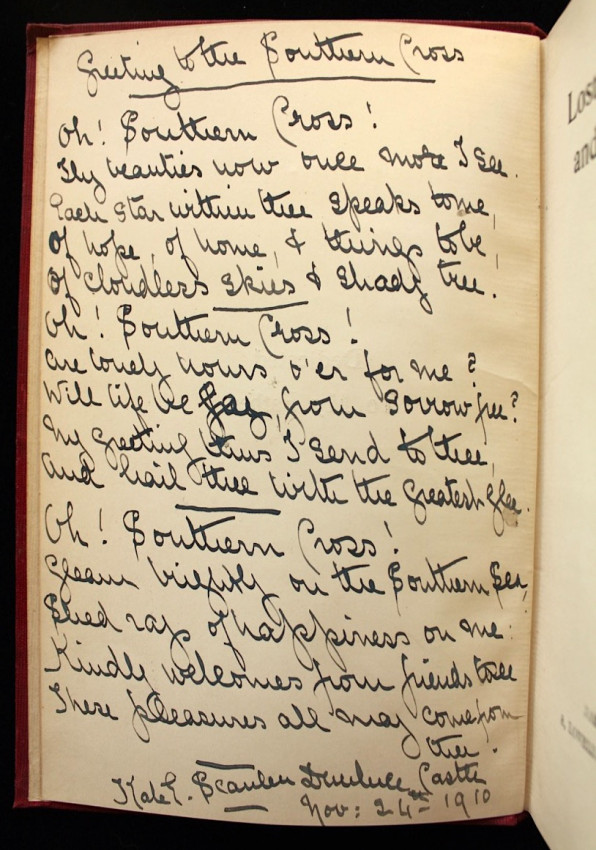 Greeting to the Southern Cross
Oh! Southern Cross!
Thy beauties now once more I see.
Each star within thee speaks to me,
Of hope, of home, & things to be,
Of cloudless skies & shady tree!
Oh! Southern Cross!
Are lonely hours o'er for me?
Will life be gay, from sorrow free?
My greeting thus I send to thee,
And hail thee with the greatest glee.
Oh! Southern Cross!
Gleam brightly on the Southern Sea,
Shed rays of happiness on me:
Kindly welcomes from friends to see
These pleasures all may come from
thee.
Kate E. Castle
Nov: 24th 1910
Lost
and